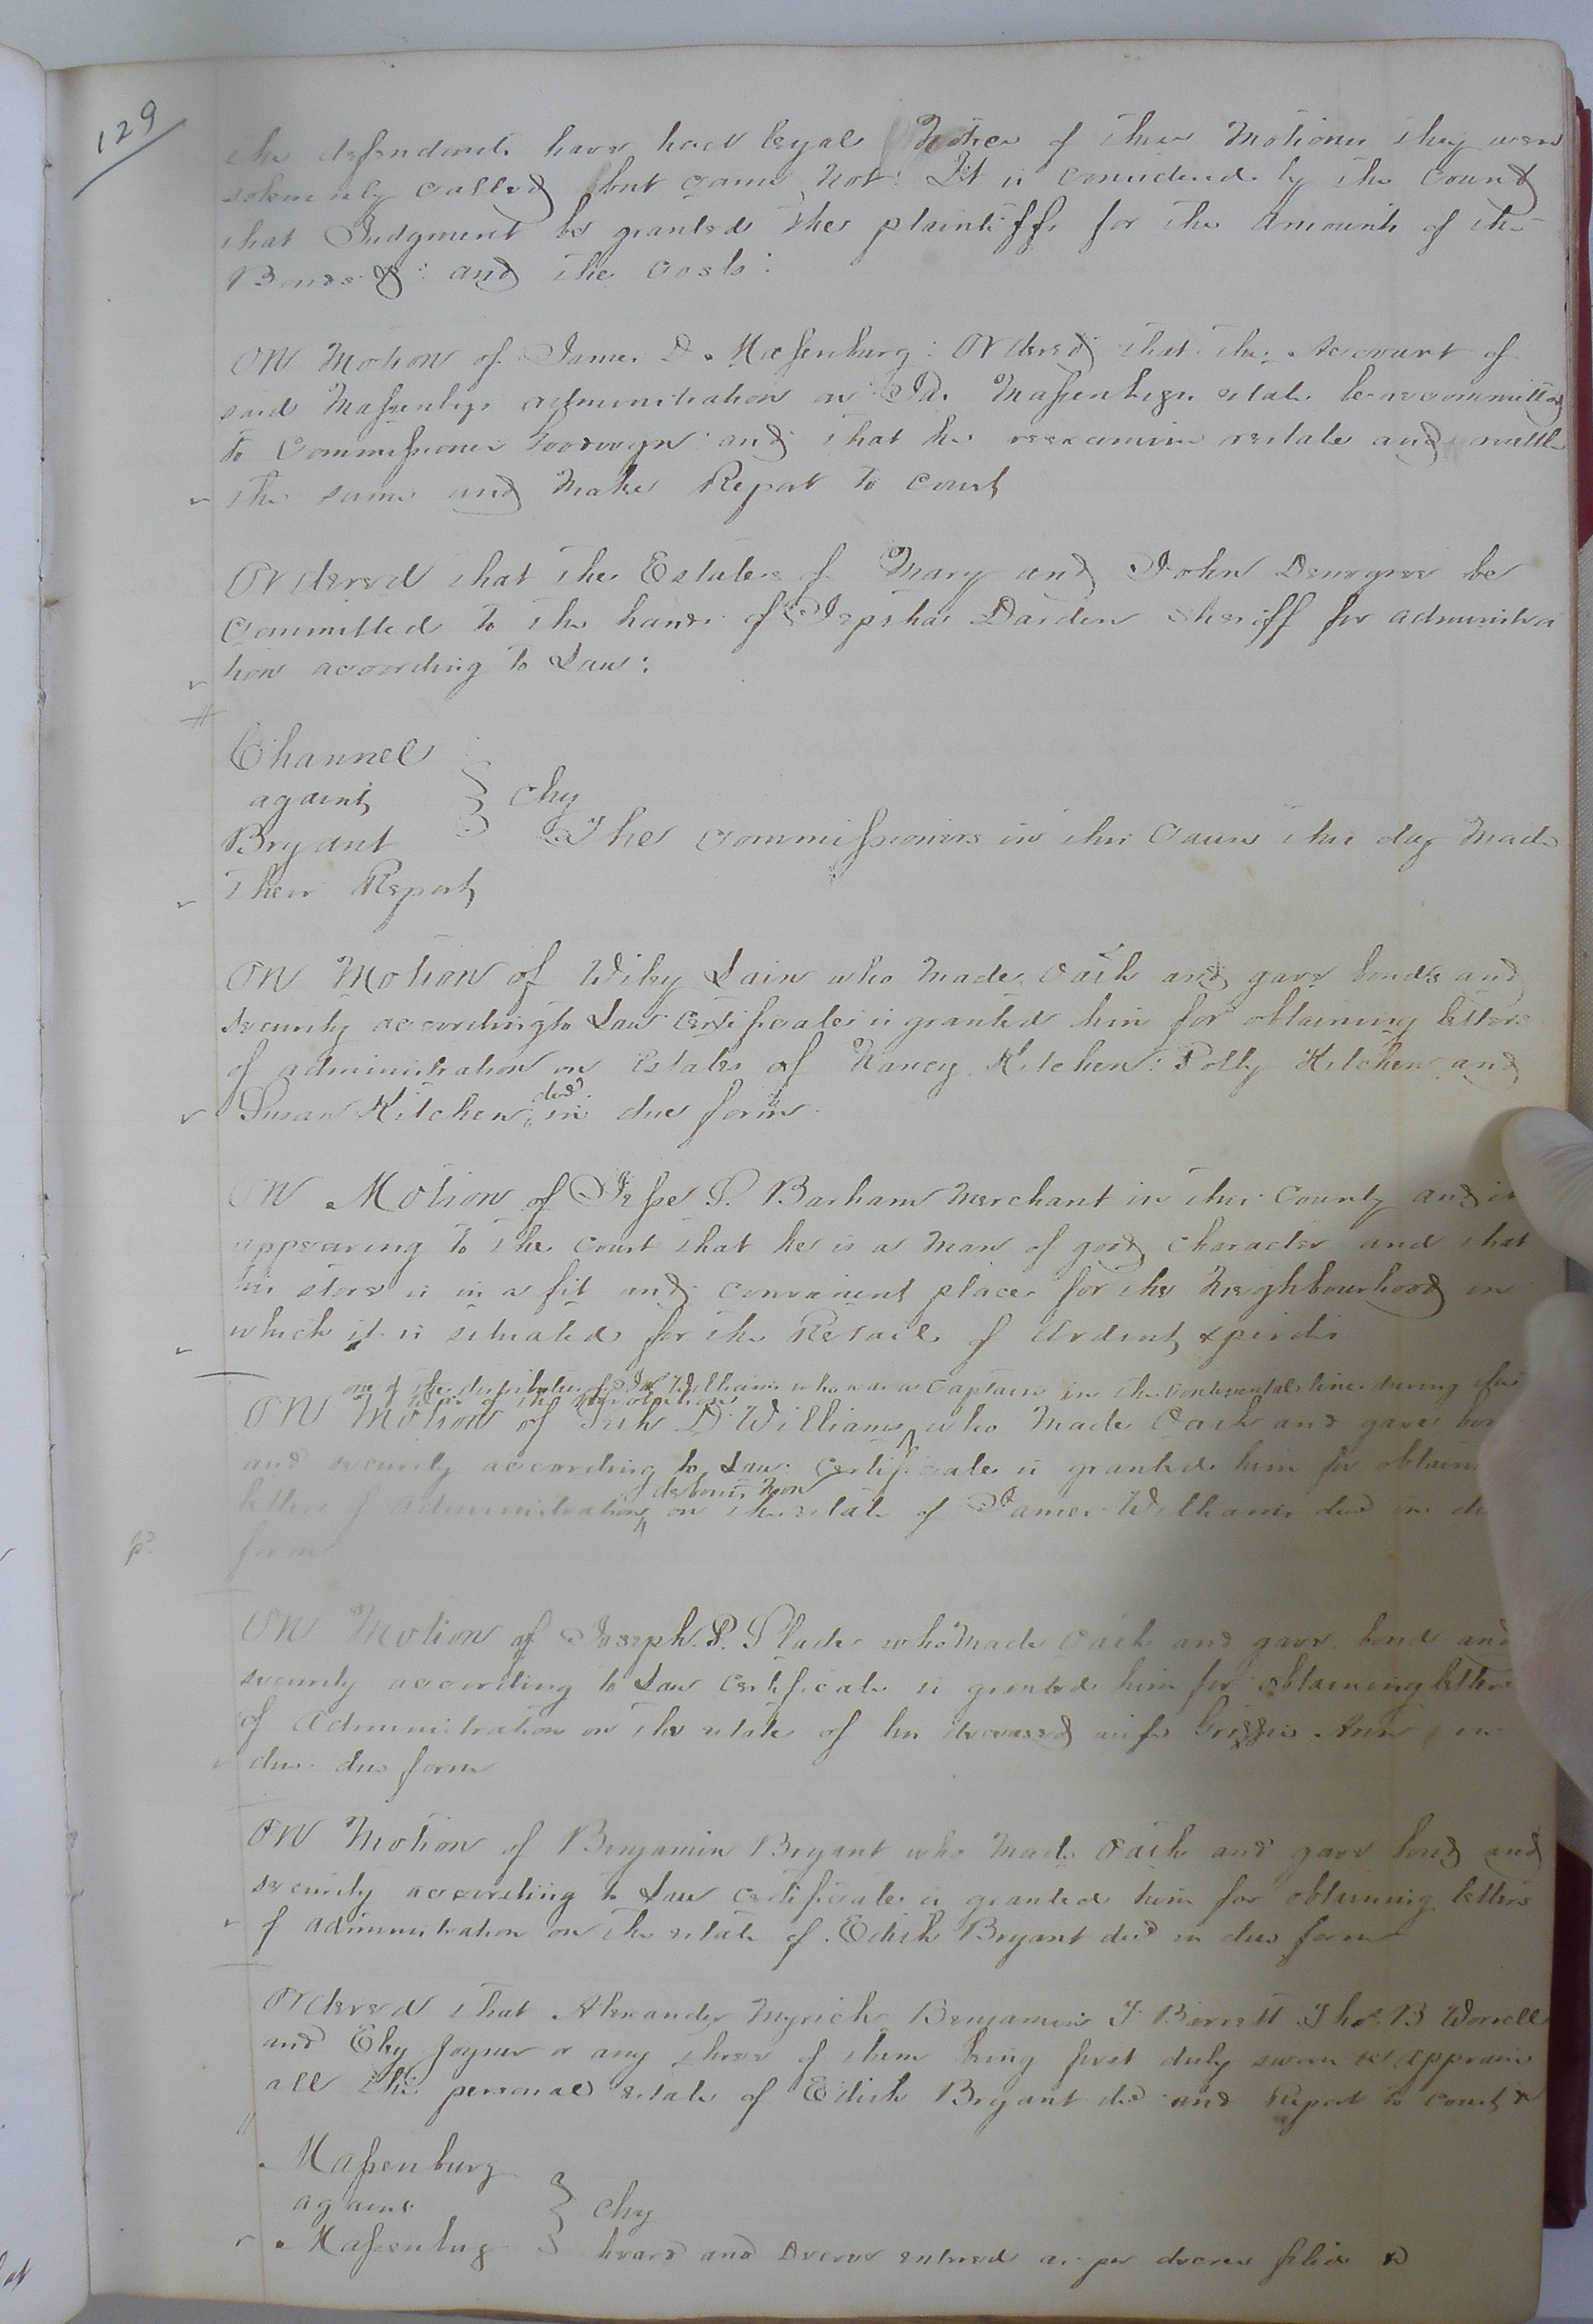 129
the defendants have had legal Notice of these Motions they were
solemnly called but came not: It is considered by the Court
that Judgment be granted the plaintiffs for the amounts of the
Bonds &: and the costs:
On Motion of James D. Massenburg: Ordered that the Account of
said Massenbgs administration on Massenbgs estate be recommitted
to Commissioner and that he reexamine restate and settle
the same and make Report to Court
Ordered that the Estates of Mary and John be
Committed to the hands of Jepthas Darden Sheriff for administra
tion according to Law:
Channel
against } chy
Bryant The Commissioners in this Cause this day made
their Report
On Motion of Wiley Lain who made Oath and gave bonds and
security according to Law Certificates is granted him for obtaining letters
of administration on Estates of Nancy Kitchen: Polly Kitchen and
Susan Kitchen decd in due form
On Motion of Jesse S. Barham Merchant in this County and it
appearing to the Court that he is a Man of good Character and that
his store is in a fit and convenient place for the Neighbourhood in
which it is situated for the Retail of Ardent spirits
one of the distributees of Jas Williams who was a Captain in the Continental line during the
war of the revolution
On Motion of D Williams who made Oath and gave
and security according to Law Certificate is granted him for
de bonis non
letters of administration on the estate of James Williams decd in
form
On Motion of Joseph P. Slade who made Oath and gave bond and
security according to Law Certificate is granted him for obtaining letters
of Administration on the estate of his deceased wife Ann in
due due form
On Motion of Benjamin Bryant who made Oath and gave bond and
security according to Law certificate is granted him for obtaining letters
of administration on the estate of Edith Bryant decd in due form
Ordered that Alexander Myrick Benjamin F Barrett Thos B Worrell
and Eley Joyner or any three of them being first duly sworn do appraise
all the personal estate of Edith Bryant decd and Report to Court &
Massenburg
against } chy
Massenbug heard and Decree entered as per decree filed &